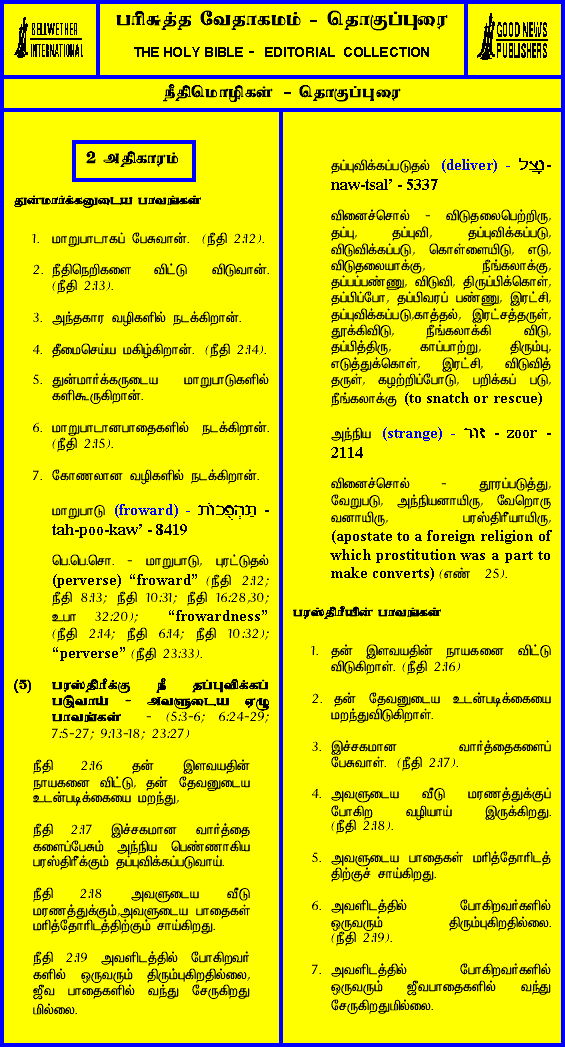 BELLWETHER
INTERNATIONAL
பரிசுத்த வேதாகமம் - தொகுப்புரை
THE HOLY BIBLE - EDITORIAL COLLECTION
GOOD NEWS
PUBLISHERS
நீதிமொழிகள் - தொகுப்புரை
2 அதிகாரம்
துன்மார்க்கனுடைய பாவங்கள்
1. மாறுபாடாகப் பேசுவான். (நீதி 2:12).
2. நீதிநெறிகளை விட்டு விடுவான்.
(நீதி 2:13).
3. அந்தகார வழிகளில் நடக்கிறான்.
4. தீமைசெய்ய மகிழ்கிறான். (நீதி 2:14).
5. துன்மார்க்கருடைய மாறுபாடுகளில்
களிகூருகிறான்.
6. மாறுபாடானபாதைகளில் நடக்கிறான்.
(நீதி 2:15).
7. கோணலான வழிகளில் நடக்கிறான்.
மாறுபாடு (froward) - תַּהְפֻּכוֹת -
tah-poo-kaw’ - 8419
பெ.பெ.சொ. - மாறுபாடு, புரட்டுதல்
(perverse) “froward” (நீதி 2:12;
நீதி 8:13; நீதி 10:31; நீதி 16:28,30;
உபா 32:20); “frowardness”
(நீதி 2:14; நீதி 6:14; நீதி 10:32);
“perverse” (நீதி 23:33).
(5) பரஸ்திரீக்கு நீ தப்புவிக்கப்
படுவாய் - அவளுடைய ஏழு
பாவங்கள் - (5:3-6; 6:24-29;
7:5-27; 9:13-18; 23:27)
நீதி 2:16 தன் இளவயதின்
நாயகனை விட்டு, தன் தேவனுடைய
உடன்படிக்கையை மறந்து,
நீதி 2:17 இச்சகமான வார்த்தை
களைப்பேசும் அந்நிய பெண்ணாகிய
பரஸ்திரீக்கும் தப்புவிக்கப்படுவாய்.
நீதி 2:18 அவளுடைய வீடு
மரணத்துக்கும்,அவளுடைய பாதைகள்
மரித்தோரிடத்திற்கும் சாய்கிறது.
நீதி 2:19 அவளிடத்தில் போகிறவர்
களில் ஒருவரும் திரும்புகிறதில்லை,
ஜீவ பாதைகளில் வந்து சேருகிறது
மில்லை.
தப்புவிக்கப்படுதல் (deliver) - נָצַל -
naw-tsal’ - 5337
வினைச்சொல் - விடுதலைபெற்றிரு,
தப்பு, தப்புவி, தப்புவிக்கப்படு,
விடுவிக்கப்படு, கொள்ளையிடு, எடு,
விடுதலையாக்கு, நீங்கலாக்கு,
தப்பப்பண்ணு, விடுவி, திருப்பிக்கொள்,
தப்பிப்போ, தப்பிவரப் பண்ணு, இரட்சி,
தப்புவிக்கப்படு,காத்தல், இரட்சத்தருள்,
தூக்கிவிடு, நீங்கலாக்கி விடு,
தப்பித்திரு, காப்பாற்று, திரும்பு,
எடுத்துக்கொள், இரட்சி, விடுவித்
தருள், கழற்றிப்போடு, பறிக்கப் படு,
நீங்கலாக்கு (to snatch or rescue)
அந்நிய (strange) - זוּר - zoor -
2114
வினைச்சொல் - தூரப்படுத்து,
வேறுபடு, அந்நியனாயிரு, வேறொரு
வனாயிரு, பரஸ்திரீயாயிரு,
(apostate to a foreign religion of
which prostitution was a part to
make converts) (எண் 25).
பரஸ்திரீயின் பாவங்கள்
1. தன் இளவயதின் நாயகனை விட்டு
விடுகிறாள். (நீதி 2:16)
2. தன் தேவனுடைய உடன்படிக்கையை
மறந்துவிடுகிறாள்.
3. இச்சகமான வார்த்தைகளைப்
பேசுவாள். (நீதி 2:17).
4. அவளுடைய வீடு மரணத்துக்குப்
போகிற வழியாய் இருக்கிறது.
(நீதி 2:18).
5. அவளுடைய பாதைகள் மரித்தோரிடத்
திற்குச் சாய்கிறது.
6. அவளிடத்தில் போகிறவர்களில்
ஒருவரும் திரும்புகிறதில்லை.
(நீதி 2:19).
7. அவளிடத்தில் போகிறவர்களில்
ஒருவரும் ஜீவபாதைகளில் வந்து
சேருகிறதுமில்லை.